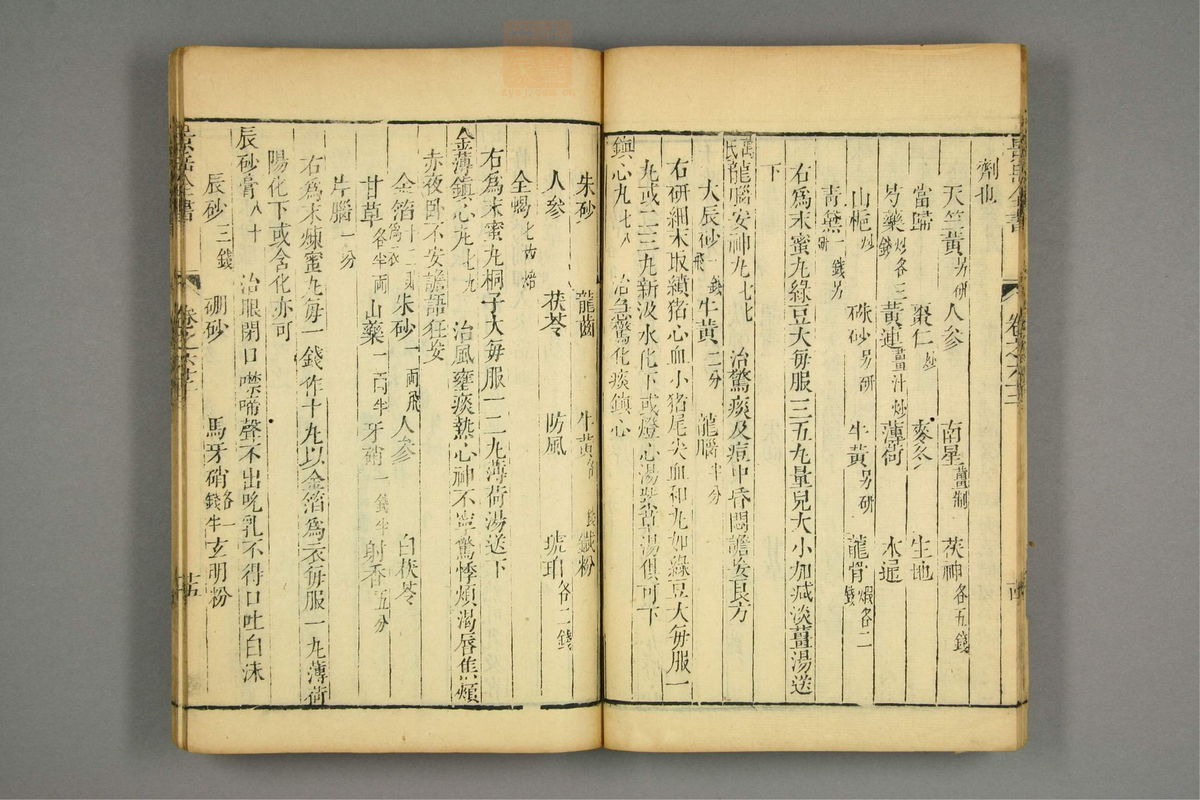 劑也
天竺黃另研 人參 南星薑制 茯神各五錢
當歸 棗仁炒 麥冬 生地
芍藥炒各三錢 黃連薑汁炒 薄荷 木通
山梔炒 硃砂另研 牛黃另研 龍骨煅各二錢
青黛一錢另研
右爲末蜜丸綠豆大每服三五丸量兒大小加減淡薑湯送
下
萬氏龍腦安神丸七七 治驚痰及痘中昏悶譫妄良方
大辰砂飛一錢 牛黃二分 龍腦半分
右研細末取豬心血小豬尾尖血和丸如綠豆大每服一
丸或二三丸新汲水化下或燈心湯紫草湯俱可下
鎮心丸七八 治急驚化痰鎮心
朱砂 龍齒 牛黃各一錢 鐵粉
人參 茯苓 防風 琥珀各二錢
全蝎七個焙
右爲末蜜丸桐子大每服一二丸薄荷湯送下
金薄鎮心丸七九 治風壅痰熱心神不寧驚悸煩渴唇焦頰
赤夜臥不安譫語狂妄
金箔十二貼爲衣 朱砂一兩飛 人參 白茯苓
甘草各半兩 山藥一兩半 牙硝一錢半 射香五分
片腦一分
右爲末煉蜜丸每一錢作十丸以金箔爲衣每服一丸薄荷
陽化下或含化亦可
辰砂膏八十 治眼閉口噤啼聲不出吮乳不得口吐白沫
辰砂三錢 硼砂 馬牙硝各一錢半 玄明粉
景岳全書 卷之六十二
景岳全書 卷之六十二